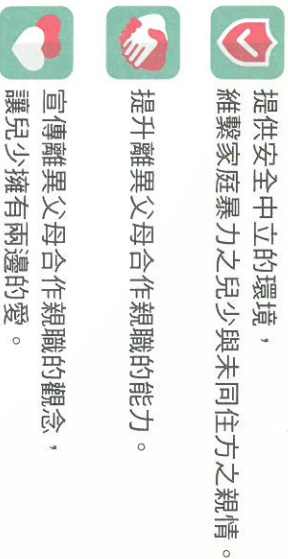 提供安全中立的環境，
維繫家庭暴力之兒少與未同住方之親情。
提升離異父母合作親職的能力。
宣傳離異父母合作親職的觀念，
讓兒少擁有兩邊的愛。